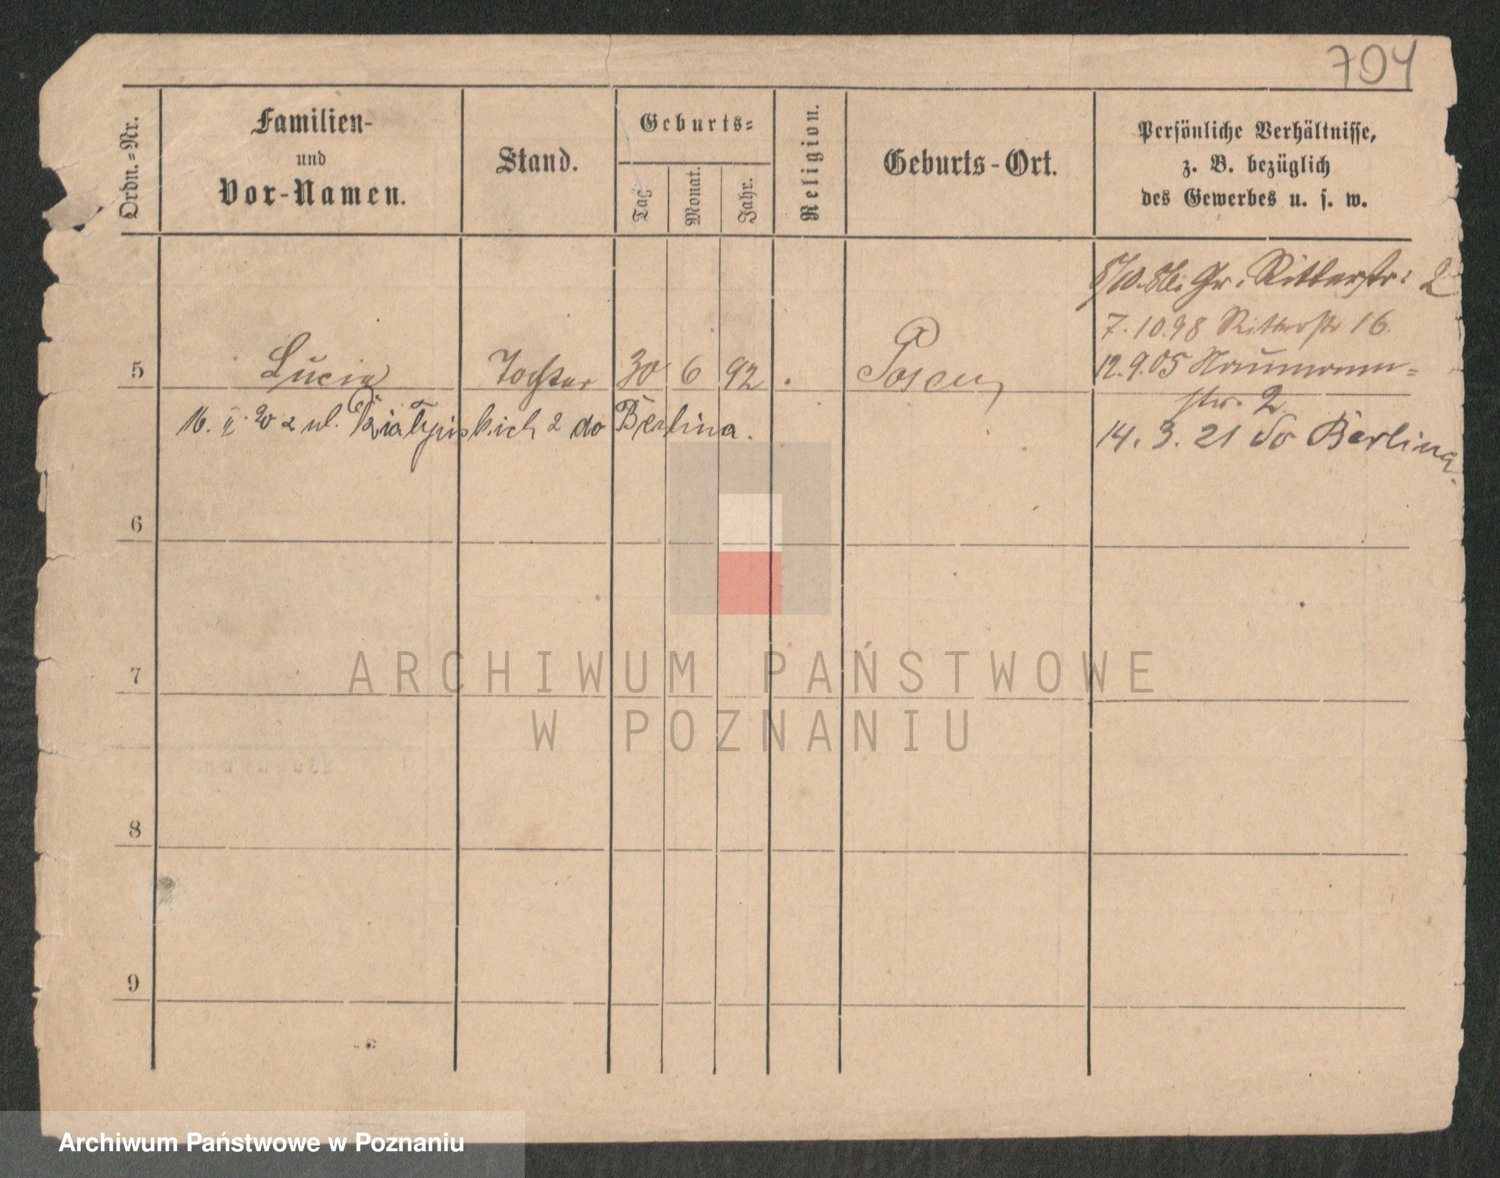 704
Ordn.-Nr.
Familien-
und
Vor-Namen.
Stand.
Geburts-
Tag.
Monat.
Jahr.
Religion.
Geburts-Ort.
Persönliche Verhältnisse,
z. B. bezüglich
des Gewerbes u. s. w.
Gr. Ritterstr: 2
7.10.98 Ritterstr 16.
12.9.05 Naumann=
str. 2
14. 3. 21 do Berlina.
5 Lucia Tochter 30 6 92 Posen
16. II. 20 z ul. 2 do Berlina.
6
7
8
9
ARCHIWUM PAŃSTWOWE
W POZNANIU
Archiwum Państwowe w Poznaniu